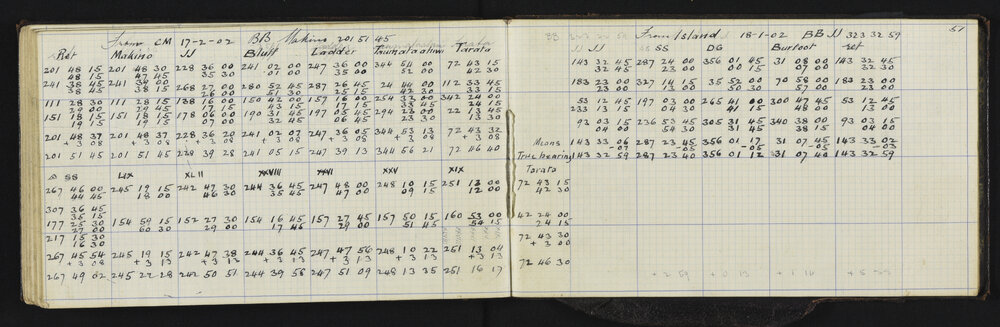 From CM 17-2-02 BB Makino 201 51 45
Ret Makino JJ Bluff Ladder Tarata
201 48 15 201 48 30 228 36 00 241 02 00 247 36 00 344 54 00 72 43 15
48 15 47 45 35 30 01 00 35 00 52 00 42 30
241 38 45 241 34 00 268 27 00 280 52 45 287 26 00 24 44 00 112 33 45
38 45 38 15 26 00 51 30 25 15 42 30 33 15
111 28 30 111 28 15 138 16 00 150 42 00 157 16 00 342 24 00
151 18 15 151 18 15 178 06 00 190 31 45 197 05 45 22 13 45
201 48 37 201 48 37 228 36 20 241 02 07 247 36 05 344 53 13 72 43 32
+ 3 08 + 3 08 + 3 08 + 3 08 + 3 08 + 3 08 + 3 08
201 51 45 201 51 45 228 39 28 241 05 15 247 39 13 344 56 21 72 46 40
SS LIX XLII XXVIII XXVI XXV XIX Tarata
267 46 00 245 19 15 242 47 30 244 36 45 247 48 00 248 10 15 251 13 00 72 43 15
44 45 18 00 46 30 35 45 47 00 09 15 12 00 42 30
307 36 45
35 15
177 25 30 154 59 15 152 27 30 154 16 45 157 27 45 157 50 15 160 53 00 42 24 00
27 00 60 30 29 00 17 45 29 00 51 45 54 15 24 15
217 15 30 72 43 30
16 30 + 3 00
267 45 54 245 19 15 242 47 38 244 36 45 247 47 56 248 10 22 251 13 04
+ 3 08 + 3 13 + 3 13 + 3 13 + 3 13 + 3 13 + 3 13 72 46 30
267 49 02 245 22 28 242 50 51 244 39 56 247 51 09 248 13 35 251 16 17
51
From Island 18-1-02 BB JJ 323 32 59
JJ SS DG Burfoot ret
143 32 45 287 24 00 356 01 45 31 08 00 143 32 45
32 45 23 00 00 15 07 00 32 30
183 23 00 327 14 15 35 52 00 70 58 00 183 23 00
23 00 13 00 50 30 57 00 23 00
53 12 45 197 03 00 265 41 00 300 47 45 53 12 45
233 13 15 04 30 41 15 48 00 13 00
93 03 15 236 53 45 305 31 45 340 38 00 93 03 15
04 00 54 30 31 45 38 15 04 00
Means 143 33 06 287 23 45 356 01 17 31 07 45 143 33 02
True bearing 143 32 59 287 23 40 356 01 12 31 07 40 143 32 59